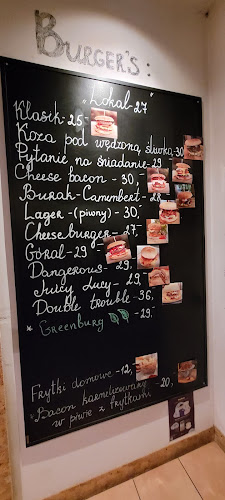 BURGER'S:
„Lokal-27"
Klasik-25-
Koza pod wędzoną śliwką-30,
Pytanie na śniadanie-29
Cheese bacon - 30,-
Burak-Camembert - 28,
Lager-(piwny) - 30,-
Cheeseburger-27,
Góral-29
Dangerous-29,
Juicy Lucy-29,
Double trouble-36,
* Greenburg -29,-
Frytki domowe-12,-
„Bacon karmelizowany -20,
w piwie z frytkami